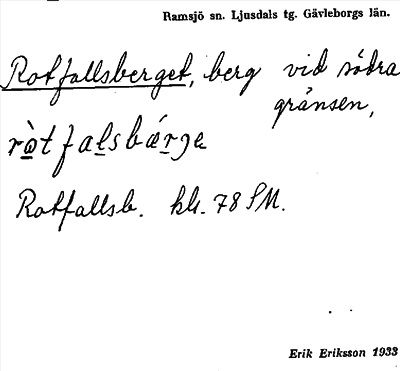 Ramsjö sn. Ljusdals tg. Gävleborgs län.
Rotfallsberget, berg vid södra
gränsen,
ròtfalsbárge
Rotfallsb. kk. 78 SM.
Erik Eriksson 1933